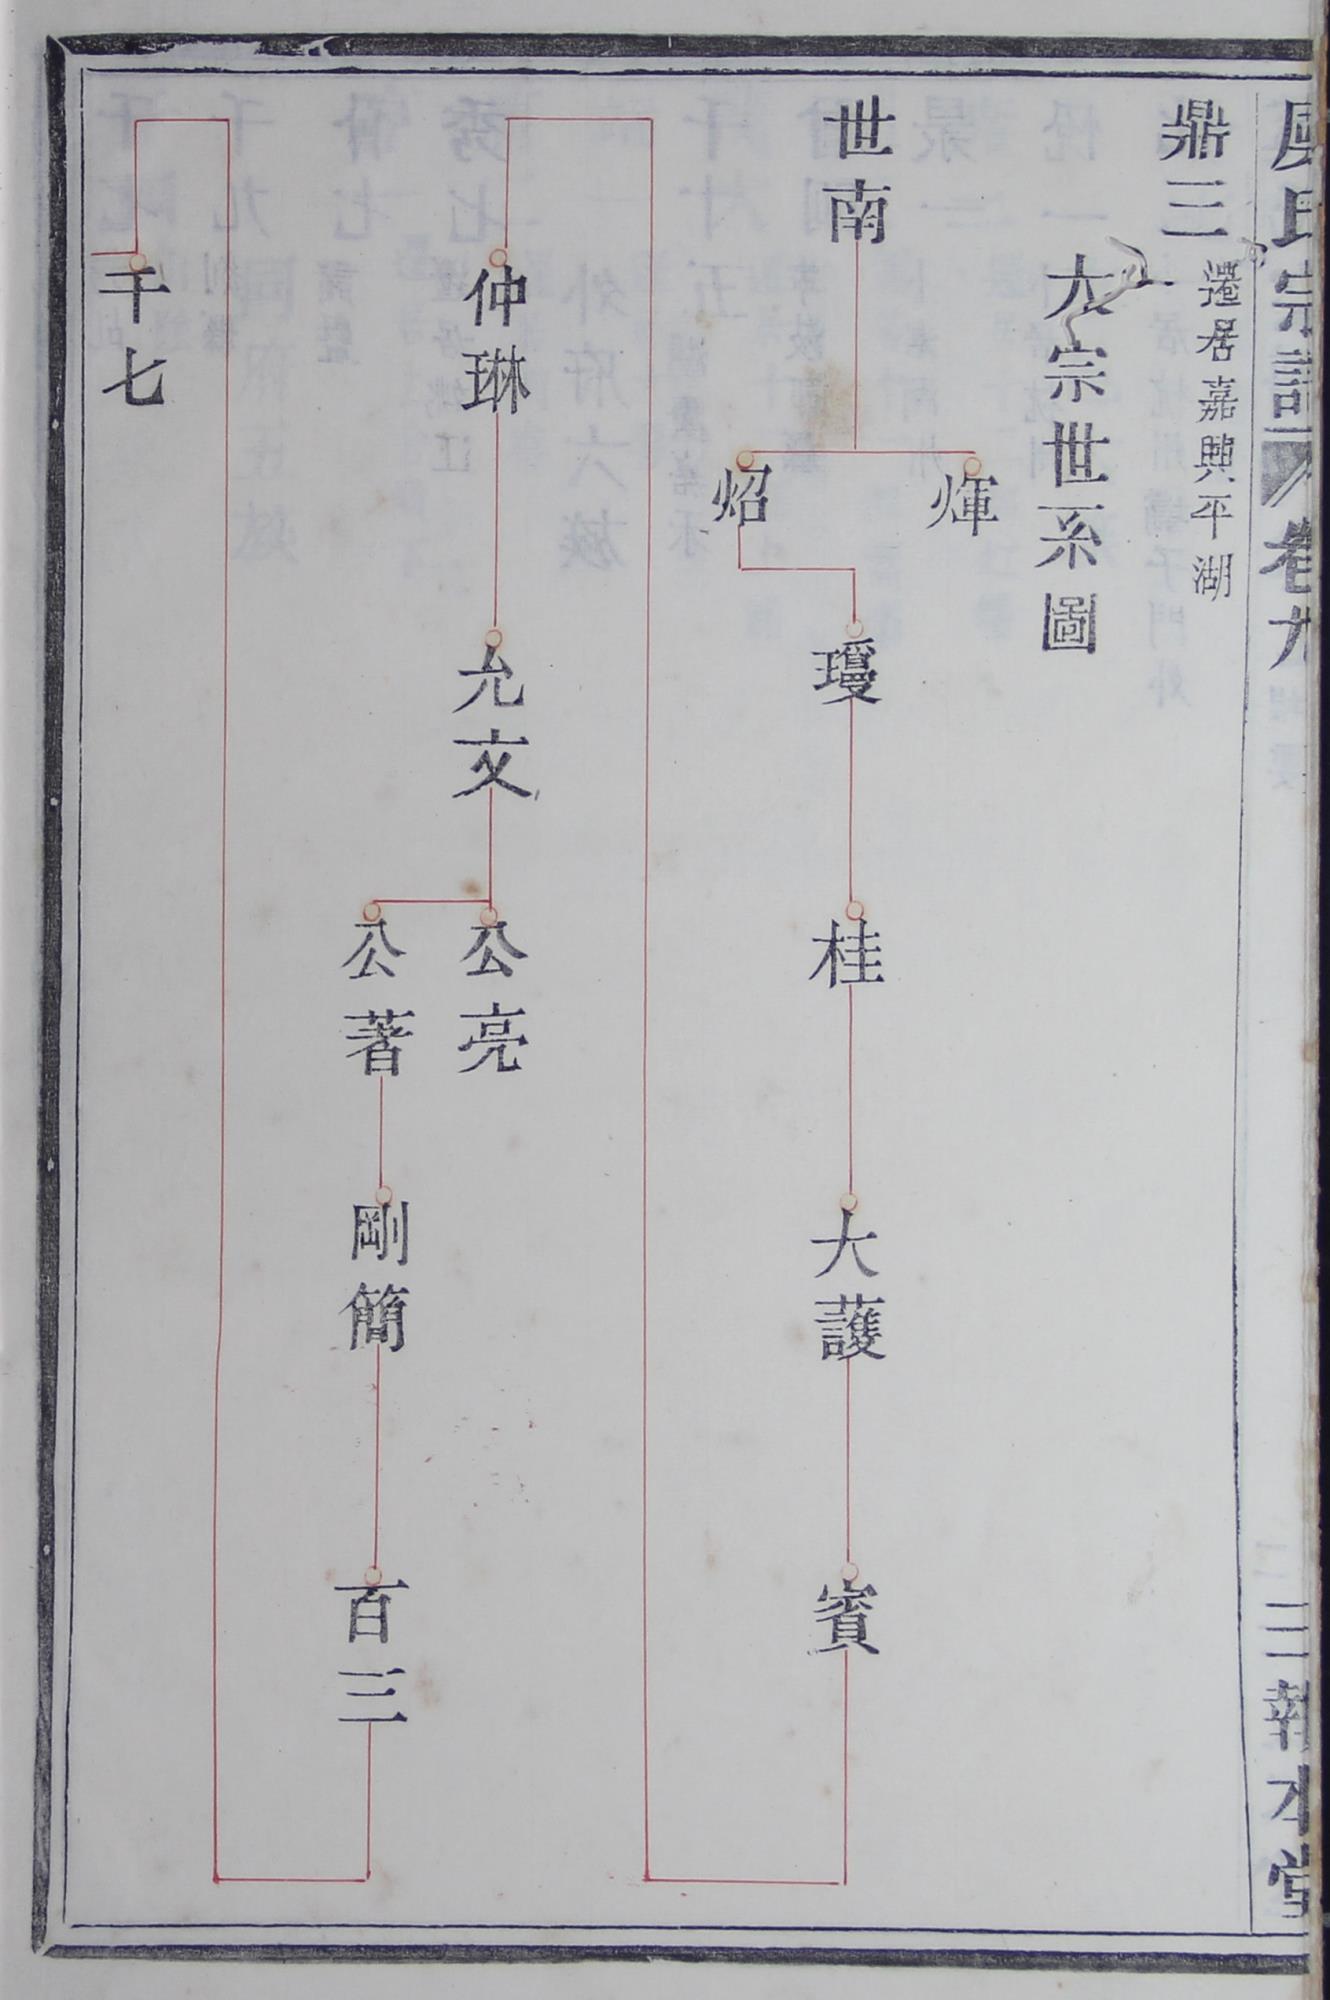 氏宗譜 卷九
三 報本堂
鼎三 遷居嘉興平湖
大宗世系圖
世南
煇
炤
瓊
桂
大護
賓
仲琳
允文
公亮
公著
剛簡
百三
千七